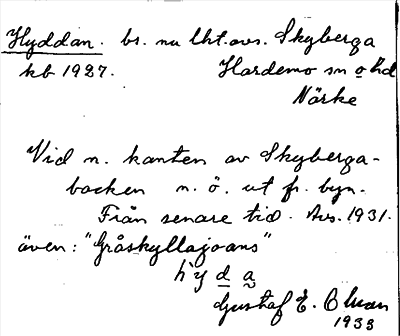 Hyddan. bs. nu lht. avs. Skyberga
kb 1927. Hardemo sn o hd
Närke
Vid n. kanten av Skyberga-
backen n. ö. ut fr. byn.
Från senare tid. Avs. 1931.
även: "Gråskyllajoans"
hyda
Gustaf E. Olsson
1933